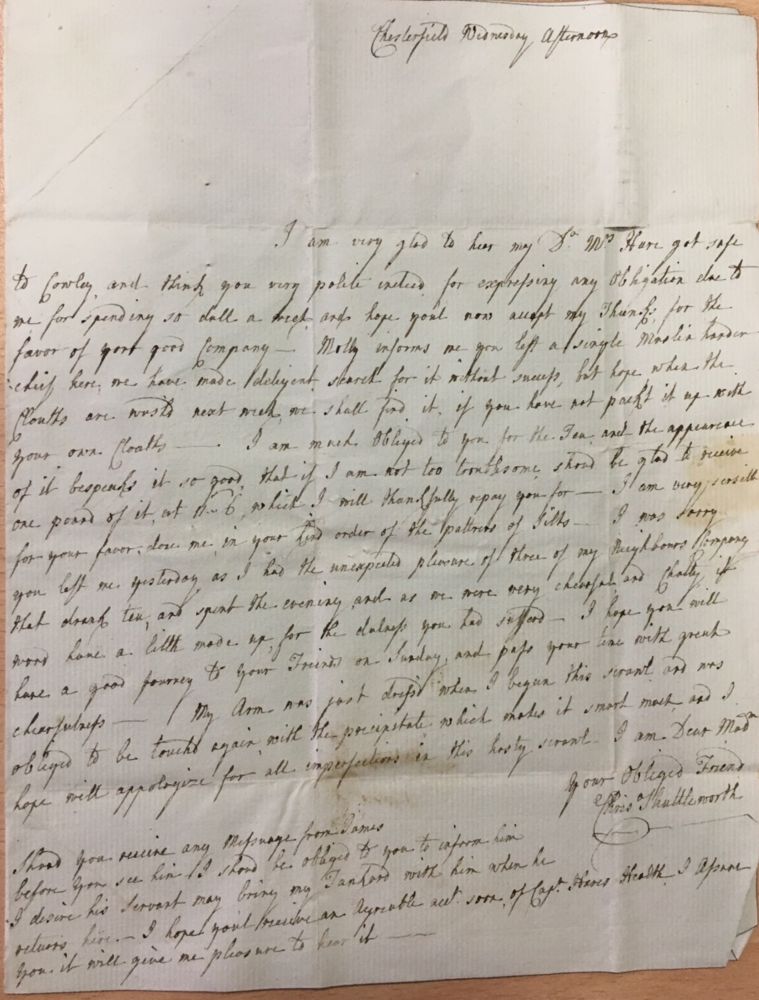 Chesterfield Wednesday Afternoon
I am very glad to hear my Dr. Mrs Hare got safe
to Cowley, and think you very polite indeed for expressing any Obligation due to
me for spending so dull a week and hope youl now accept my Thanks, for the
favor of your good Company — Molly informs me you left a single Muslin handker
cheif here, we have made deligent search for it without success, but hope when the
Cloaths are wash'd next week, we shall find it, if you have not packt it up with
your own Cloaths — I am much Obliged to you for the Tea, and the appearance
of it bespeaks it so good, that if I am not too troublesome, shoud be glad to receive
one pound of it, at which I will thankfully repay you for — I am very sensible
for your favor, done me, in your kind order of the pattrens of — I was sorry
you left me yesterday as I had the unexpected pleasure of three of my Neighbours Company
that drank tea, and spent the evening, and as we were very chearful and Chatty, it
woud have a little made up, for the dulness you had sufferd — I hope you will
have a good Journey to your Friends on Sunday, and pass your time with great
chearfulness — My Arm was just dress'd when I begun this scrawl and was
obliged to be touch'd again, with the precipitate which makes it smart much and I
hope will appologize for all imperfections in this hasty scrawl I am Dear Madm
Your Obliged Friend
Shuttleworth
Shoud you receive any Message from James
before you see him I shoud be obliged to you to inform him
I desire his Servant may bring my Tankard with him when he
returns here — I hope youl receive an Agreable acct. soon, of Capt. Hares Health, I Assure
You it will give me pleasure to hear it —